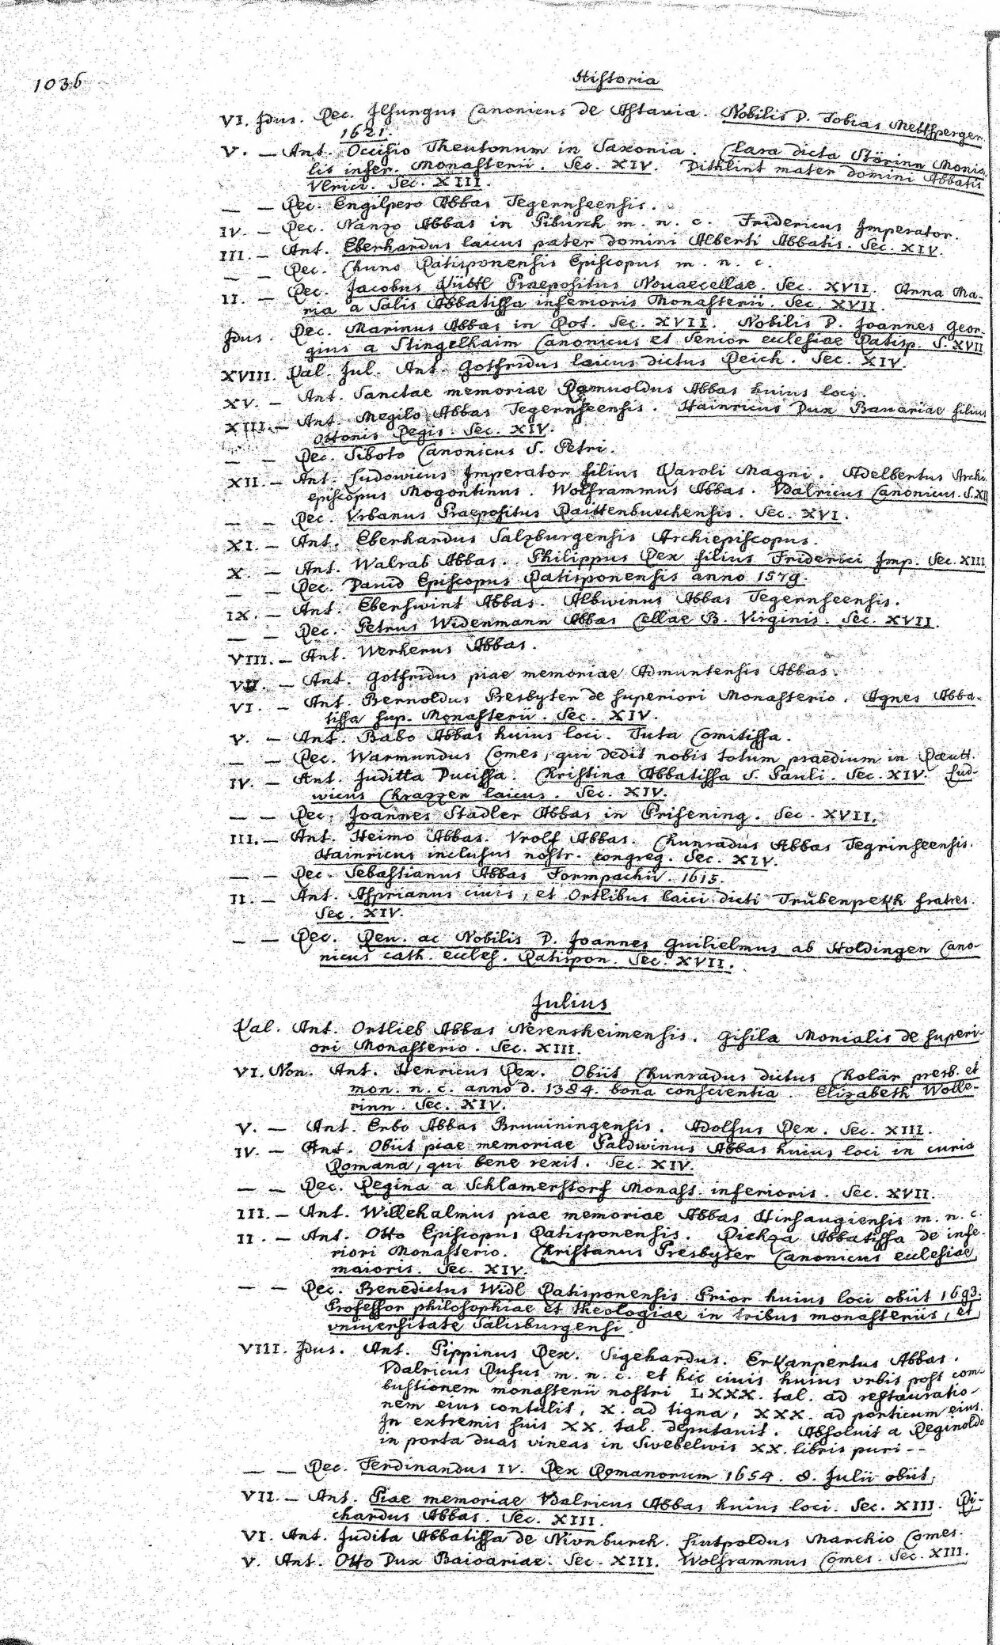 1036
Historia
VI. Jdus. Rec. Ilsungus Canonicus de Astavia. Nobilis D. Tobias Metlsperger
1621.
V. — Ant. Occisio Theutonum in Saxonia. Clara dicta Störinn Monia-
lis infer. Monasterii. Sec. XIV. Dithlint mater domini Abbatis
Vlrici. Sec. XIII.
— — Rec. Engilpero Abbas Tegernseensis.
IV. — Rec. Nanzo Abbas in Piburch m. n. c. Fridericus Imperator.
III. — Ant. Eberhardus laicus pater domini Alberti Abbatis. Sec. XIV.
— — Rec. Chuno Ratisponensis Episcopus m. n. c.
II. — Rec. Jacobus Kübtl Praepositus Nouaecellae. Sec. XVII. Anna Ma-
ria a Salis Abbatissa inferioris Monasterii. Sec XVII
Jdus. Rec. Marinus Abbas in Rot. Sec. XVII. Nobilis D. Joannes Geor-
gius a Stingelhaim Canonicus et Senior ecclesiae Ratisp. S. XVII
XVIII. Kal. Jul. Ant. Gotfridus laicus dictus Reich. Sec. XIV.
XV. — Ant. Sanctae memoriae Ramuoldus Abbas huius loci.
XIII. — Ant. Megilo Abbas Tegernseensis. Hainricus Dux Bauariae filius
Ottonis Regis. Sec. XIV.
— — Rec. Siboto Canonicus S. Petri.
XII. — Ant. Ludowicus Imperator filius Karoli Magni. Adelbertus Archi-
episcopus Mogontinus. Wolframmus Abbas. Vdalricus Canonicus. S. XII
— — Rec. Vrbanus Praepositus Raittenbuechensis. Sec. XVI.
XI. — Ant. Eberhardus Salzburgensis Archiepiscopus.
X. — Ant. Walrab Abbas. Philippus Rex filius Friderici Imp. Sec. XIII
— — Rec. Dauid Episcopus Ratisponensis anno 1579.
IX. — Ant. Eberswint Abbas. Albwinus Abbas Tegernseensis.
— — Rec. Petrus Widenmann Abbas Cellae B. Virginis. Sec. XVII.
VIII. — Ant. Werherus Abbas.
VII. — Ant. Gotfridus piae memoriae Admuntensis Abbas.
VI. — Ant. Bernoldus Presbyter de superiori Monasterio. Agnes Abba-
tissa sup. Monasterii. Sec. XIV.
V. — Ant. Babo Abbas huius loci. Tuta Comitissa.
— — Rec. Warmundus Comes, qui dedit nobis totum praedium in Raeutt.
IV. — Ant. Juditta Ducissa. Christina Abbatissa S. Pauli. Sec. XIV. Lud-
wicus Chrazzer laicus. Sec. XIV.
— — Rec. Joannes Stadler Abbas in Prifening. Sec. XVII.
III. — Ant. Heimo Abbas. Vrolf Abbas. Chunradus Abbas Tegrinseensis.
Hainricus inclusus nostr. congreg. Sec. XIV.
— — Rec. Sebastianus Abbas Formpachii. 1615.
II. — Ant. Asprianus ciuis, et Ortlibus laici dicti Trübenpekh fratres.
Sec. XIV.
— — Rec. Ren. ac Nobilis D. Joannes Guilielmus ab Holdingen Cano-
nicus cath. eccles. Ratispon. Sec. XVII.
Julius
Kal. Ant. Ortlieb Abbas Nerensheimensis. Gisila Monialis de superi-
ori Monasterio. Sec. XIII.
VI. Non. Ant. Henricus Rex. Obiit Chunradus dictus Cholär presb. et
mon. n. c. anno d. 1384. bona conscientia. Elizabeth Wolle-
rinn. Sec. XIV.
V. — Ant. Erbo Abbas Bruuiningensis. Adolfus Rex. Sec. XIII.
IV. — Ant. Obiit piae memoriae Paldwinus Abbas huius loci in curia
Romana, qui bene rexit. Sec. XIV.
— — Rec. Regina a Schlamerstorf Monast. inferioris. Sec. XVII.
III. — Ant. Willehalmus piae memoriae Abbas Hirsaugiensis m. n. c.
II. — Ant. Otto Episcopus Ratisponensis. Richza Abbatissa de infe-
riori Monasterio. Christanus Presbyter Canonicus ecclesiae
maioris. Sec. XIV.
— — Rec. Benedictus Widl Ratisponensis Prior huius loci obiit 1693.
Professor philosophiae et theologiae in tribus monasteriis, et
vniuersitate Salisburgensi.
VIII. Jdus. Ant. Pippinus Rex. Sigehardus. Erkanpertus Abbas.
Vdalricus Rufus m. n. c. et hic ciuis huius vrbis post com-
bustionem monasterii nostri LXXX. tal. ad restauratio-
nem eius contulit, X. ad tigna, XXX. ad porticum eius.
In extremis suis XX. tal. deputauit. Absoluit a Reginoldo
in porta duas vineas in Swebelwis XX. libris puri --
— — Rec. Ferdinandus IV. Rex Romanorum 1654. 8. Julii obiit.
VII. — Ant. Piae memoriae Vdalricus Abbas huius loci. Sec. XIII. Ri-
chardus Abbas. Sec. XIII.
VI. Ant. Judita Abbatissa de Nivnburch. Liutpoldus Marchio Comes.
V. Ant. Otto Dux Baioariae. Sec. XIII. Wolframmus Comes. Sec. XIII.